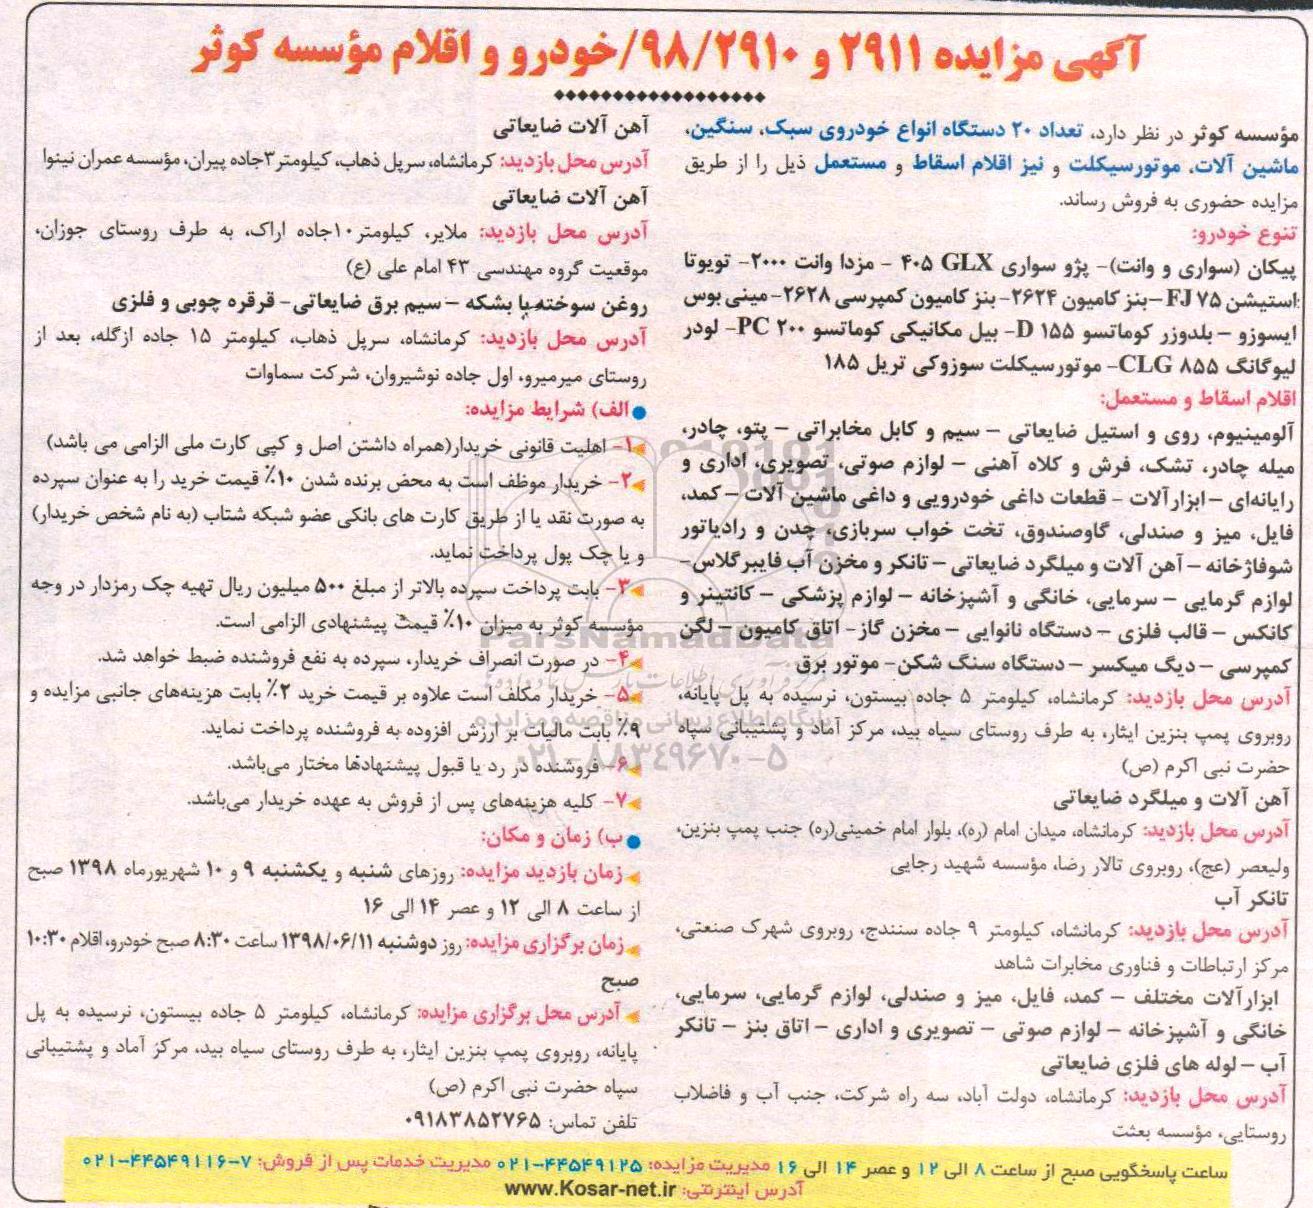 آگهی مزایده ۲۹۱۱ و ۹۸/۲۹۱۰/خودرو و اقلام مؤسسه کوثر
مؤسسه کوثر در نظر دارد، تعداد ۲۰ دستگاه انواع خودروی سبک، سنگین،
ماشین آلات، موتورسیکلت و نیز اقلام اسقاط و مستعمل ذیل را از طریق
مزایده حضوری به فروش رساند.
تنوع خودرو:
پیکان (سواری و وانت)- پژو سواری ۴۰۵ GLX - مزدا وانت ۲۰۰۰- تویوتا
استیشن FJ ۷۵ –بنز کامیون ۲۶۲۴- بنز کامیون کمپرسی ۲۶۲۸-مینی بوس
ایسوزو – بلدوزر کوماتسو D ۱۵۵- بیل مکانیکی کوماتسو PC ۲۰۰- لودر
لیوگانگ CLG ۸۵۵- موتورسیکلت سوزوکی تریل ۱۸۵
اقلام اسقاط و مستعمل:
آلومینیوم، روی و استیل ضایعاتی – سیم و کابل مخابراتی – پتو، چادر،
میله چادر، تشک، فرش و کلاه آهنی – لوازم صوتی، تصویری، اداری و
رایانه‌ای – ابزارآلات - قطعات داغی خودرویی و داغی ماشین آلات – کمد،
فایل، میز و صندلی، گاوصندوق، تخت خواب سربازی، چدن و رادیاتور
شوفاژخانه – آهن آلات و میلگرد ضایعاتی – تانکر و مخزن آب فایبرگلاس-
لوازم گرمایی – سرمایی، خانگی و آشپزخانه – لوازم پزشکی – کانتینر و
کانکس – قالب فلزی – دستگاه نانوایی – مخزن گاز- اتاق کامیون – لگن
کمپرسی – دیگ میکسر – دستگاه سنگ شکن- موتور برق
آدرس محل بازدید: کرمانشاه، کیلومتر ۵ جاده بیستون، نرسیده به پل پایانه،
روبروی پمپ بنزین ایثار، به طرف روستای سیاه بید، مرکز آماد و پشتیبانی سپاه
حضرت نبی اکرم (ص)
آهن آلات و میلگرد ضایعاتی
آدرس محل بازدید: کرمانشاه، میدان امام (ره)، بلوار امام خمینی(ره) جنب پمپ بنزین،
ولیعصر (عج)، روبروی تالار رضا، مؤسسه شهید رجایی
تانکر آب
آدرس محل بازدید: کرمانشاه، کیلومتر ۹ جاده سنندج، روبروی شهرک صنعتی،
مرکز ارتباطات و فناوری مخابرات شاهد
ابزارآلات مختلف – کمد، فایل، میز و صندلی، لوازم گرمایی، سرمایی،
خانگی و آشپزخانه – لوازم صوتی – تصویری و اداری – اتاق بنز – تانکر
آب – لوله های فلزی ضایعاتی
آدرس محل بازدید: کرمانشاه، دولت آباد، سه راه شرکت، جنب آب و فاضلاب
روستایی، مؤسسه بعثت
آهن آلات ضایعاتی
آدرس محل بازدید: کرمانشاه، سرپل ذهاب، کیلومتر ۳جاده پیران، مؤسسه عمران نینوا
آهن آلات ضایعاتی
آدرس محل بازدید: ملایر، کیلومتر۱۰جاده اراک، به طرف روستای جوزان،
موقعیت گروه مهندسی ۴۳ امام علی (ع)
روغن سوخته با بشکه – سیم برق ضایعاتی- قرقره چوبی و فلزی
آدرس محل بازدید: کرمانشاه، سرپل ذهاب، کیلومتر ۱۵ جاده ازگله، بعد از
روستای میرمیرو، اول جاده نوشیروان، شرکت سماوات
●الف) شرایط مزایده:
۱- اهلیت قانونی خریدار(همراه داشتن اصل و کپی کارت ملی الزامی می باشد)
۲- خریدار موظف است به محض برنده شدن ۱۰٪ قیمت خرید را به عنوان سپرده
به صورت نقد یا از طریق کارت های بانکی عضو شبکه شتاب (به نام شخص خریدار)
و یا چک پول پرداخت نماید.
۳- بابت پرداخت سپرده بالاتر از مبلغ ۵۰۰ میلیون ریال تهیه چک رمزدار در وجه
مؤسسه کوثر به میزان ۱۰٪ قیمت پیشنهادی الزامی است.
۴- در صورت انصراف خریدار، سپرده به نفع فروشنده ضبط خواهد شد.
۵- خریدار مکلف است علاوه بر قیمت خرید ۲٪ بابت هزینه‌های جانبی مزایده و
۹٪ بابت مالیات بر ارزش افزوده به فروشنده پرداخت نماید.
۶- فروشنده در رد یا قبول پیشنهادها مختار می‌باشد.
۷- کلیه هزینه‌های پس از فروش به عهده خریدار می‌باشد.
●ب) زمان و مکان:
زمان بازدید مزایده: روزهای شنبه و یکشنبه ۹ و ۱۰ شهریورماه ۱۳۹۸ صبح
از ساعت ۸ الی ۱۲ و عصر ۱۴ الی ۱۶
زمان برگزاری مزایده: روز دوشنبه ۱۳۹۸/۰۶/۱۱ ساعت ۸:۳۰ صبح خودرو، اقلام ۱۰:۳۰
صبح
آدرس محل برگزاری مزایده: کرمانشاه، کیلومتر ۵ جاده بیستون، نرسیده به پل
پایانه، روبروی پمپ بنزین ایثار، به طرف روستای سیاه بید، مرکز آماد و پشتیبانی
سپاه حضرت نبی اکرم (ص)
تلفن تماس: ۰۹۱۸۳۸۵۲۷۶۵
ساعت پاسخگویی صبح از ساعت ۸ الی ۱۲ و عصر ۱۴ الی ۱۶ مدیریت مزایده: ۰۲۱-۴۴۵۴۹۱۲۵ مدیریت خدمات پس از فروش: ۷-۰۲۱-۴۴۵۴۹۱۱۶
آدرس اینترنتی: www.Kosar-net.ir
ParsNamadData
پایگاه اطلاع رسانی مناقصه و مزایده
۰۲۱-۸۸۳۴۹۶۷۰-۵